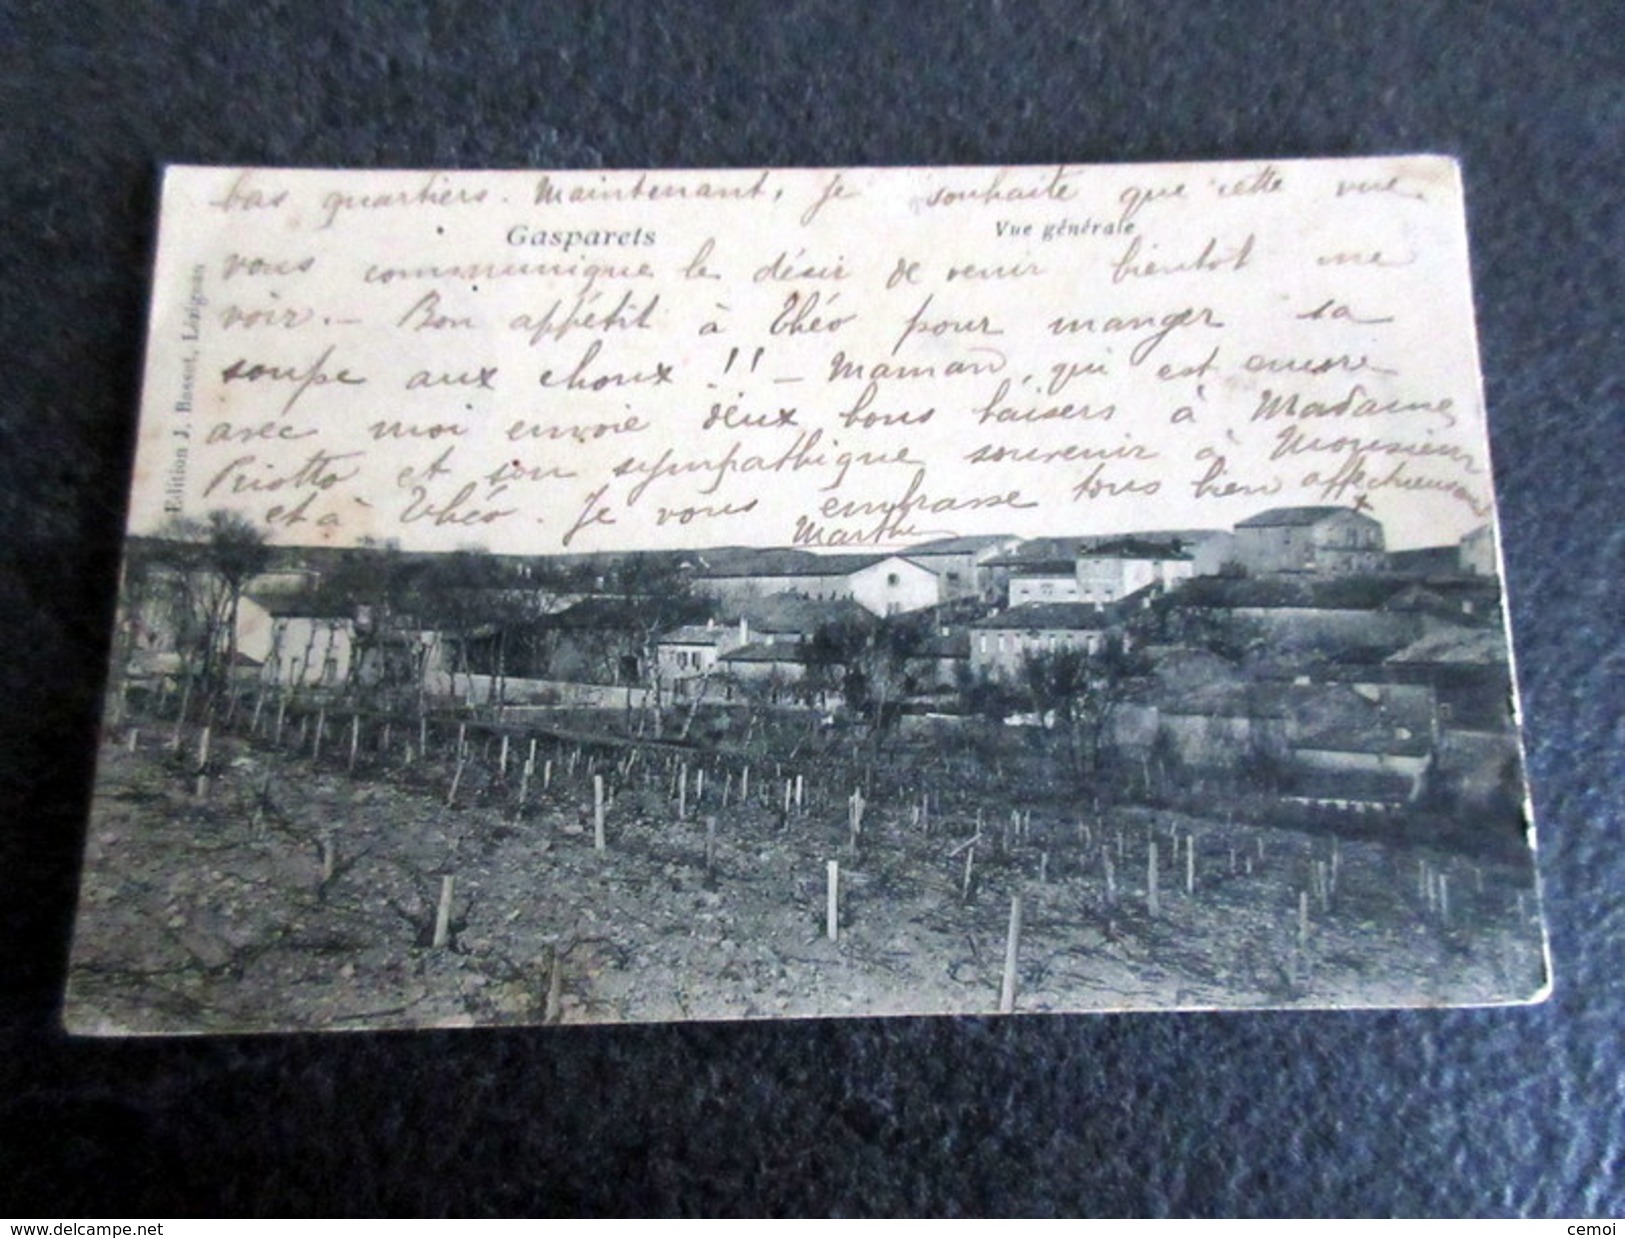 bas quartiers. Maintenant, je souhaite que cette vue
Gasparets
Vue générale
vous communique le désir de venir bientot me
voir. — Bon appétit à Théo pour manger sa
soupe aux choux !! — Maman, qui est encore
avec moi envoie deux bons baisers à Madame
Riotto et son sympathique souvenir à Monsieur
et à Théo. Je vous embrasse tous bien affectueusement
Marthe
Edition J. Basset, Lézignan
www.delcampe.net
cemoi